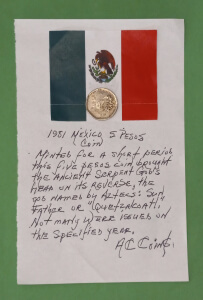 1981 MEXICO, 5 PESOS
COIN
MINTED FOR A SHORT PERIOD
THIS FIVE PESOS COIN, BROUGHT
THE ANCIENT SERPENT GOD'S
HEAD ON ITS REVERSE, THE
GOD NAMED BY AZTECS: SUN
FATHER OR "QUETZALCOATL".
NOT MANY WERE ISSUED ON
THE SPECIFIED YEAR.
AC COINS.